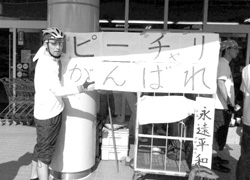 ピースチャリ
がんばれ
永遠平和